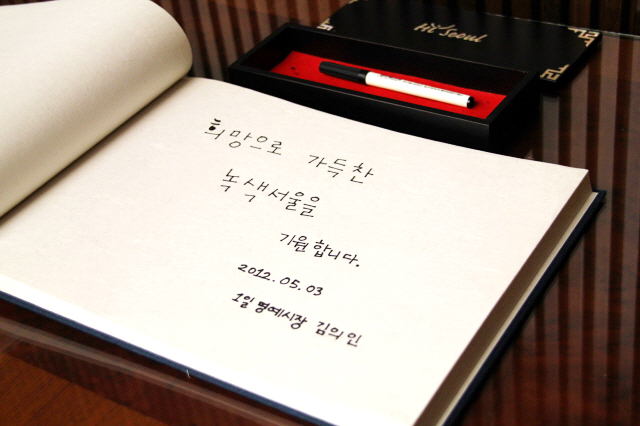 Hi Seoul
희망으로 가득찬
녹색서울을
기원합니다.
2012.05.03
1일 명예시장 김의인